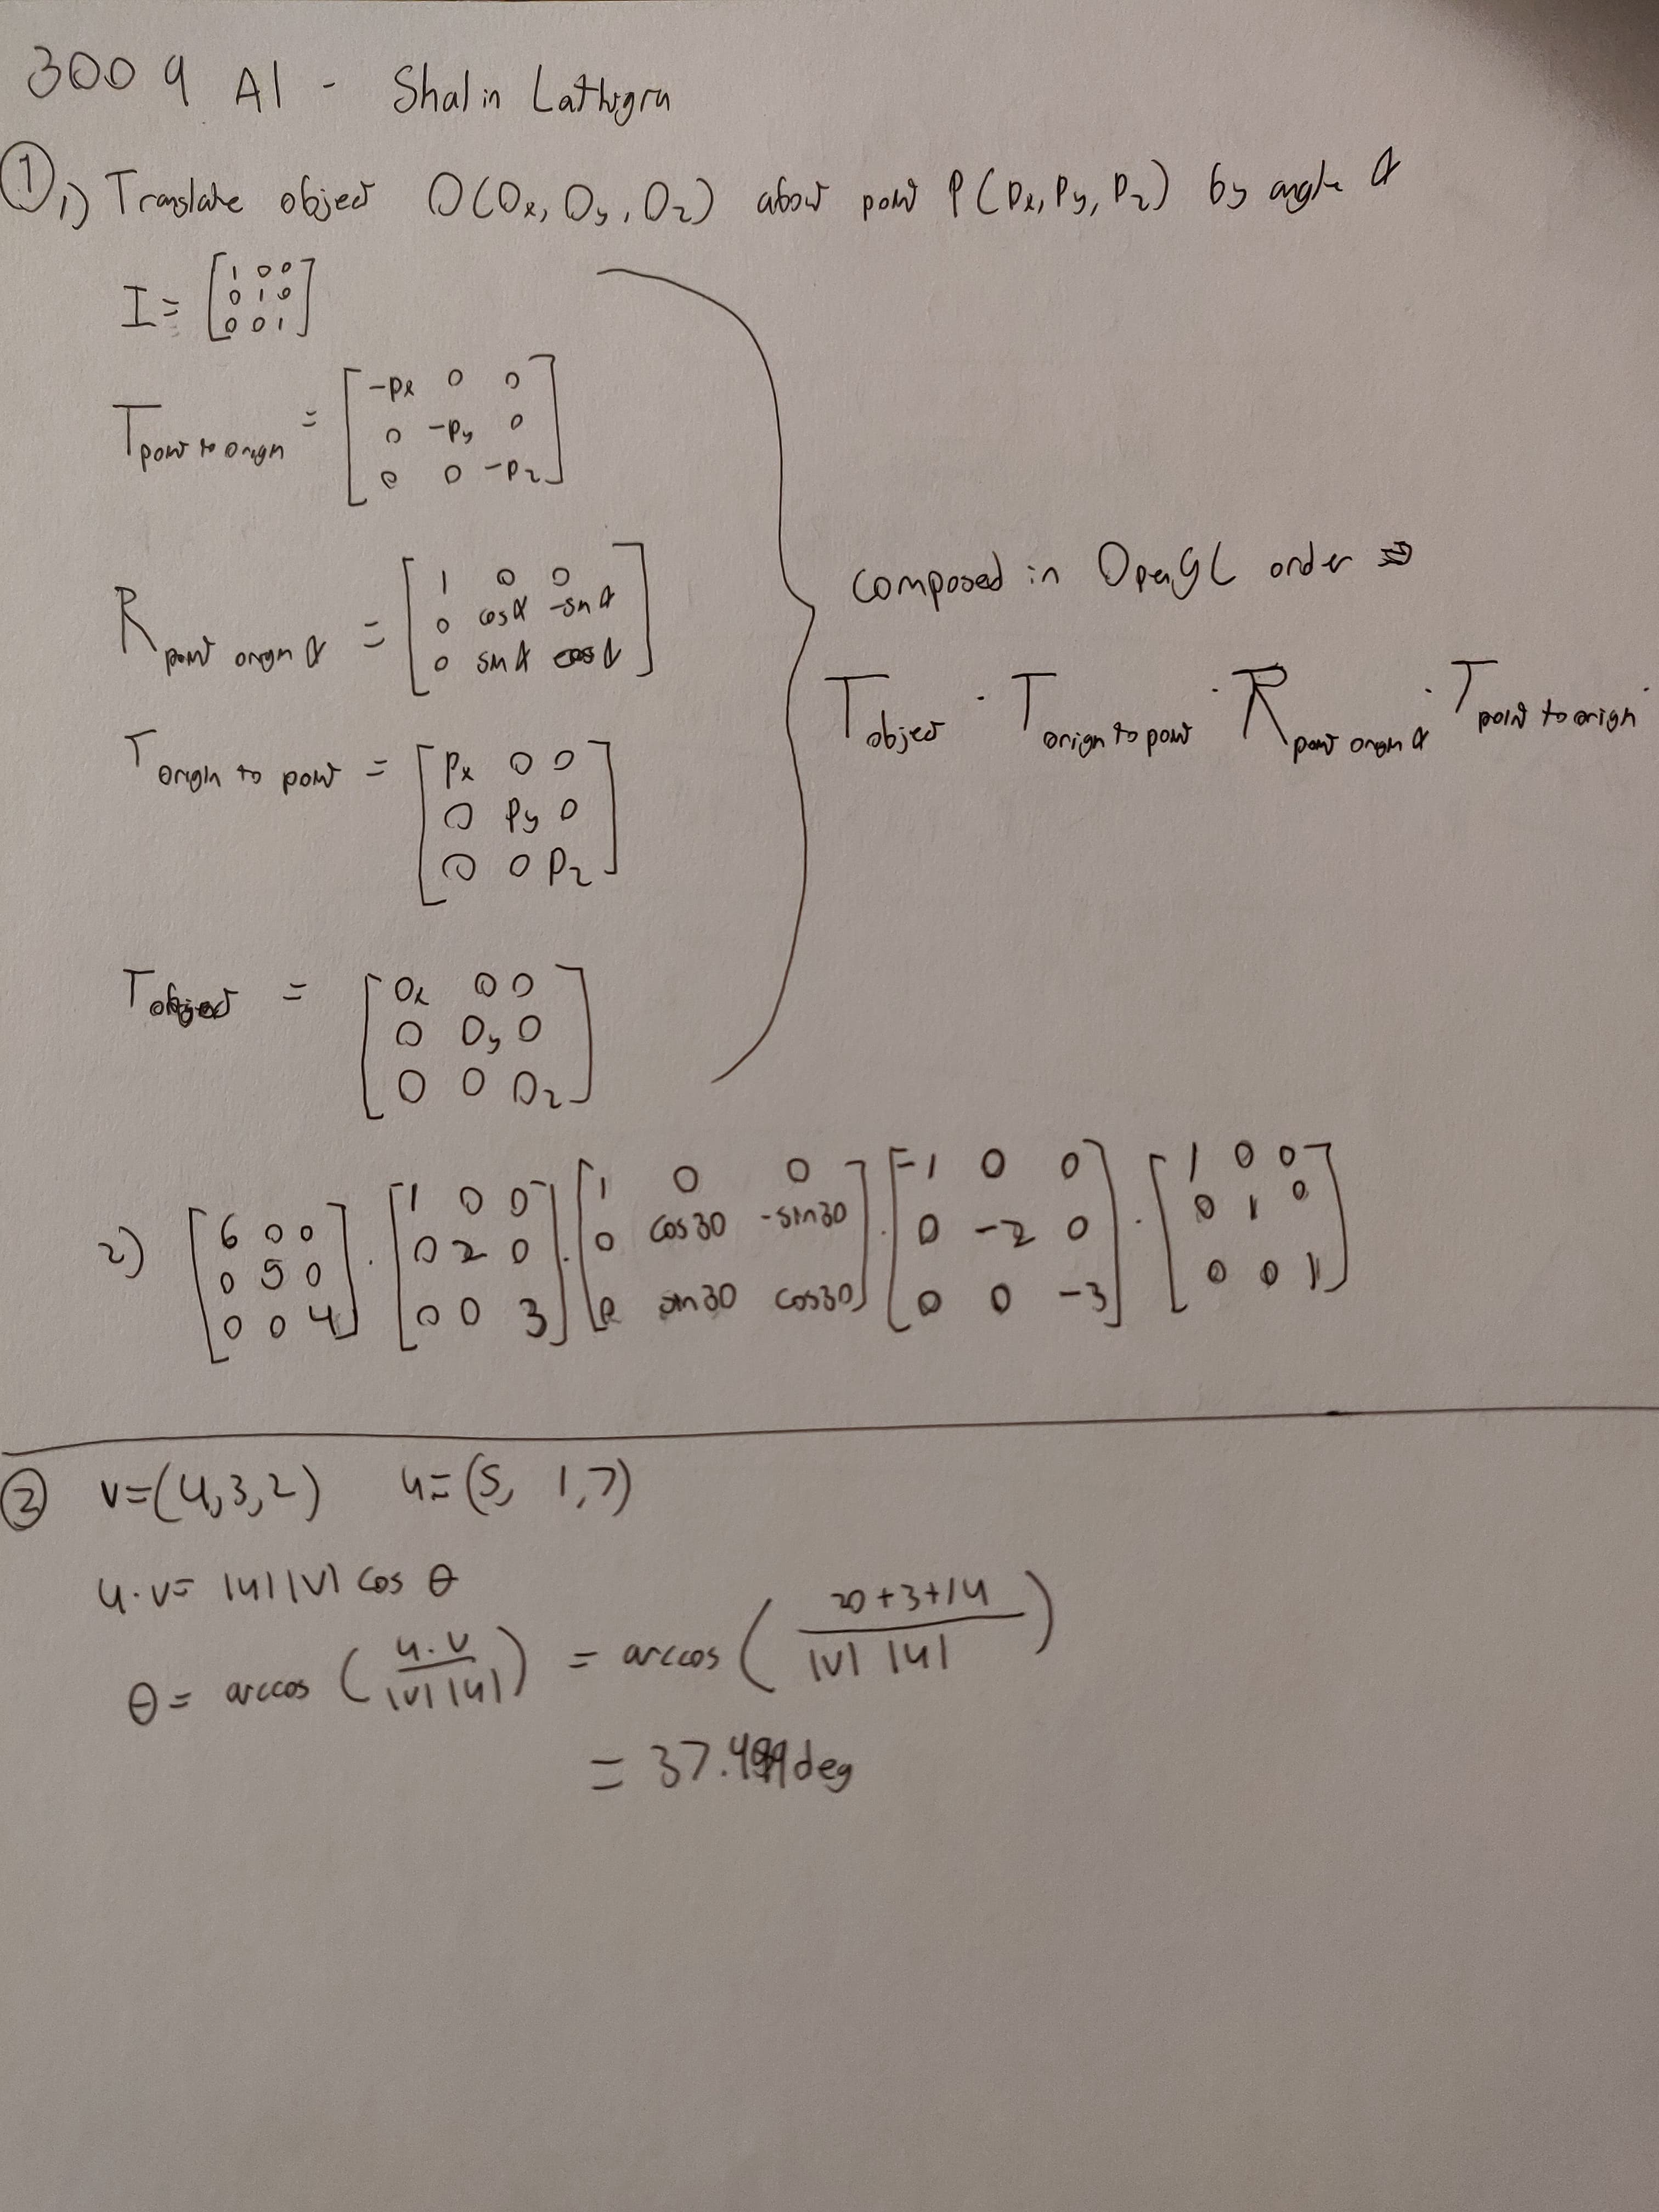 3009 A1 - Shalin Lathigra
① 1) Translate object O(Ox, Oy, Oz) about point P(Px, Py, Pz) by angle α
I = [1 0 0
0 1 0
0 0 1]
T point to origin = [-Px 0 0
0 -Py 0
0 0 -Pz]
R point origin α = [1 0 0
0 cosα -sinα
0 sinα cosα]
T origin to point = [Px 0 0
0 Py 0
0 0 Pz]
T object = [Ox 0 0
0 Oy 0
0 0 Oz]
composed in OpenGL order ⇒
T object · T origin to point · R point origin α · T point to origin ·
2) [6 0 0 · [1 0 0 · [1 0 0 · [-1 0 0 · [1 0 0
0 5 0 0 2 0 0 cos30 -sin30 0 -2 0 0 1 0
0 0 4] 0 0 3] 0 sin30 cos30] 0 0 -3] 0 0 1]
② v=(4,3,2) u=(5, 1,7)
u·v= |u||v| cos θ
θ = arccos (u·v / |v||u|) = arccos (20+3+14 / |v| |u|)
= 37.499deg